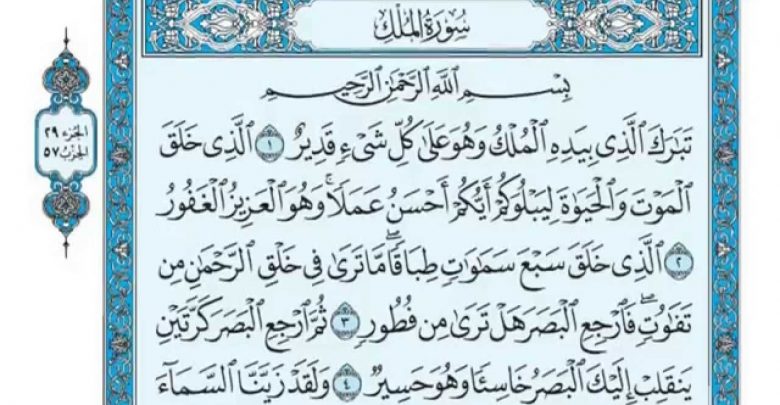 سُورَةُ المُلْكِ
بِسْمِ ٱللَّهِ ٱلرَّحْمَٰنِ ٱلرَّحِيمِ
تَبَٰرَكَ ٱلَّذِى بِيَدِهِ ٱلْمُلْكُ وَهُوَ عَلَىٰ كُلِّ شَىْءٍ قَدِيرٌ ١ ٱلَّذِى خَلَقَ
ٱلْمَوْتَ وَٱلْحَيَوٰةَ لِيَبْلُوَكُمْ أَيُّكُمْ أَحْسَنُ عَمَلًا ۚ وَهُوَ ٱلْعَزِيزُ ٱلْغَفُورُ
٢ ٱلَّذِى خَلَقَ سَبْعَ سَمَٰوَٰتٍ طِبَاقًا ۖ مَّا تَرَىٰ فِى خَلْقِ ٱلرَّحْمَٰنِ مِن
تَفَٰوُتٍ ۖ فَٱرْجِعِ ٱلْبَصَرَ هَلْ تَرَىٰ مِن فُطُورٍ ٣ ثُمَّ ٱرْجِعِ ٱلْبَصَرَ كَرَّتَيْنِ
يَنقَلِبْ إِلَيْكَ ٱلْبَصَرُ خَاسِئًا وَهُوَ حَسِيرٌ ٤ وَلَقَدْ زَيَّنَّا ٱلسَّمَآءَ
الجزء ٢٩
الحزب ٥٧